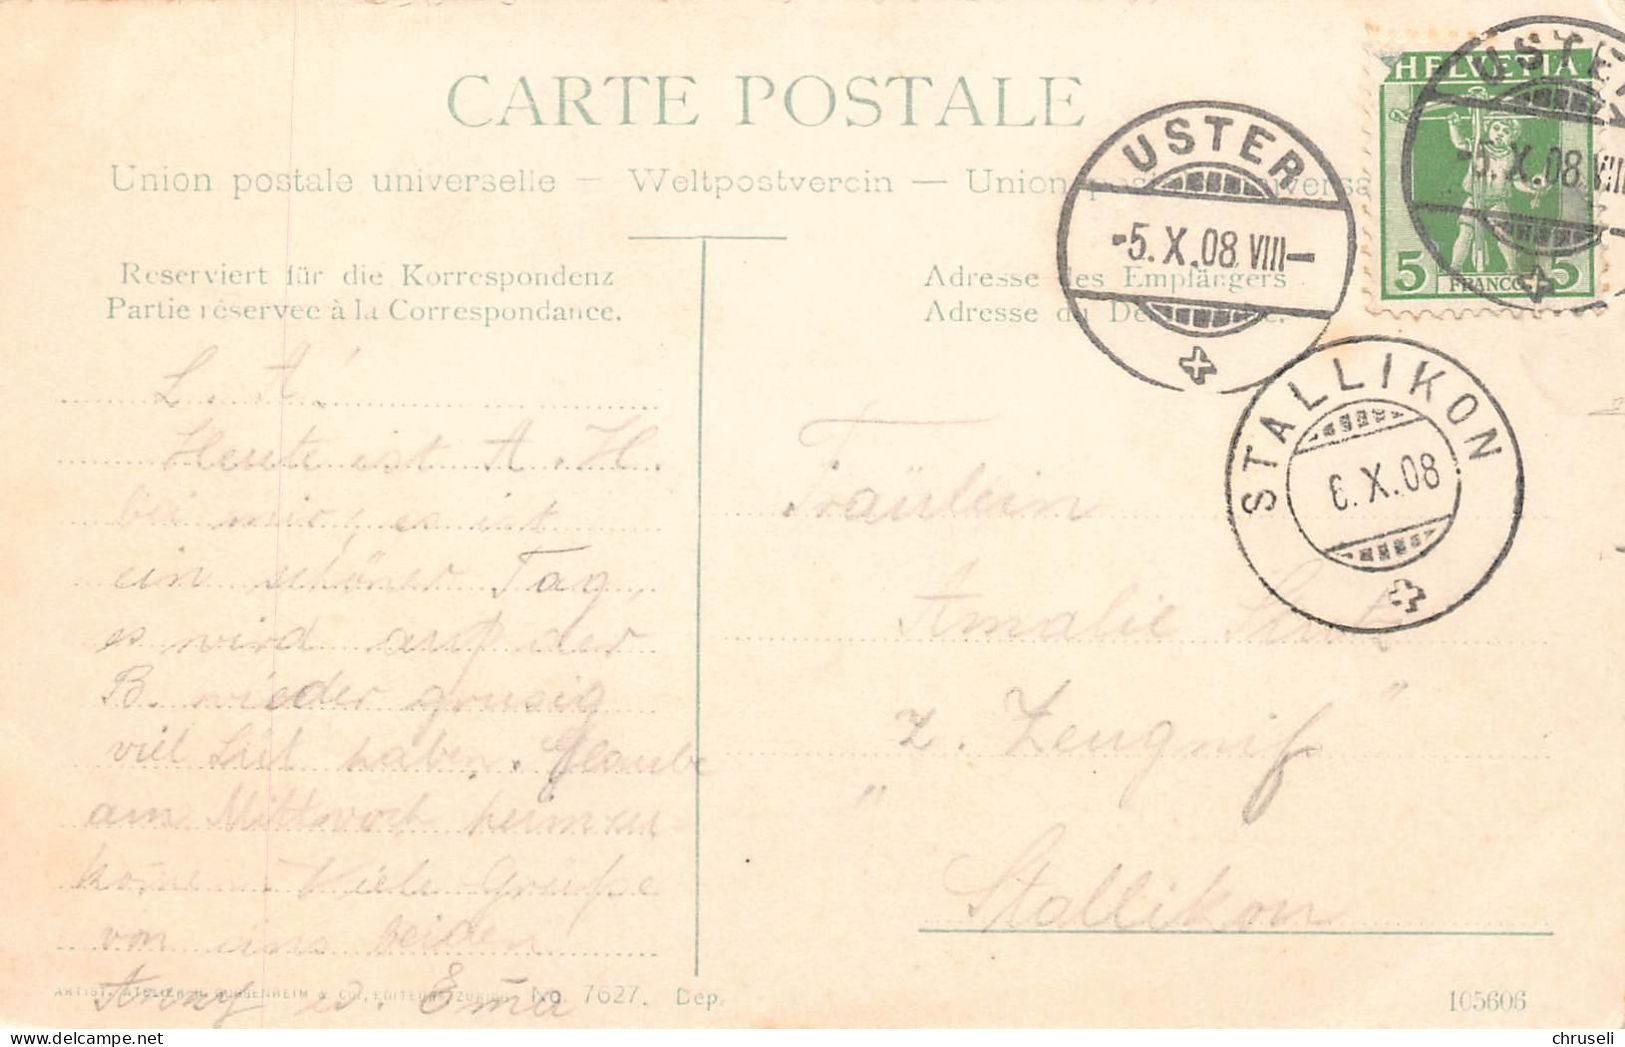 CARTE POSTALE
Union postale universelle – Weltpostverein – Union
Reserviert für die Korrespondenz
Partie réservée à la Correspondance.
Adresse des Empfängers
Adresse du
HELVETIA
5 FRANCO 5
USTER
-5.X.08 VIII-
USTER
-5.X.08 VIII
STALLIKON
6.X.08
L. A!
Heute ist A. H.
bei mir, es ist
ein schöner Tag,
es wird auf der
B. wieder grusig
viel Lüt haben. Glaube
am Mittwoch heim zu
komen. Viele Grüße
von uns beiden
Anny u. Ema
Fräulein
Amalie
z. Zeugniß"
"
Stallikon
ARTIST. ATELIER H. GUGGENHEIM & CO., EDITEURS, ZÜRICH No. 7627. Dep.
105606
chruseli